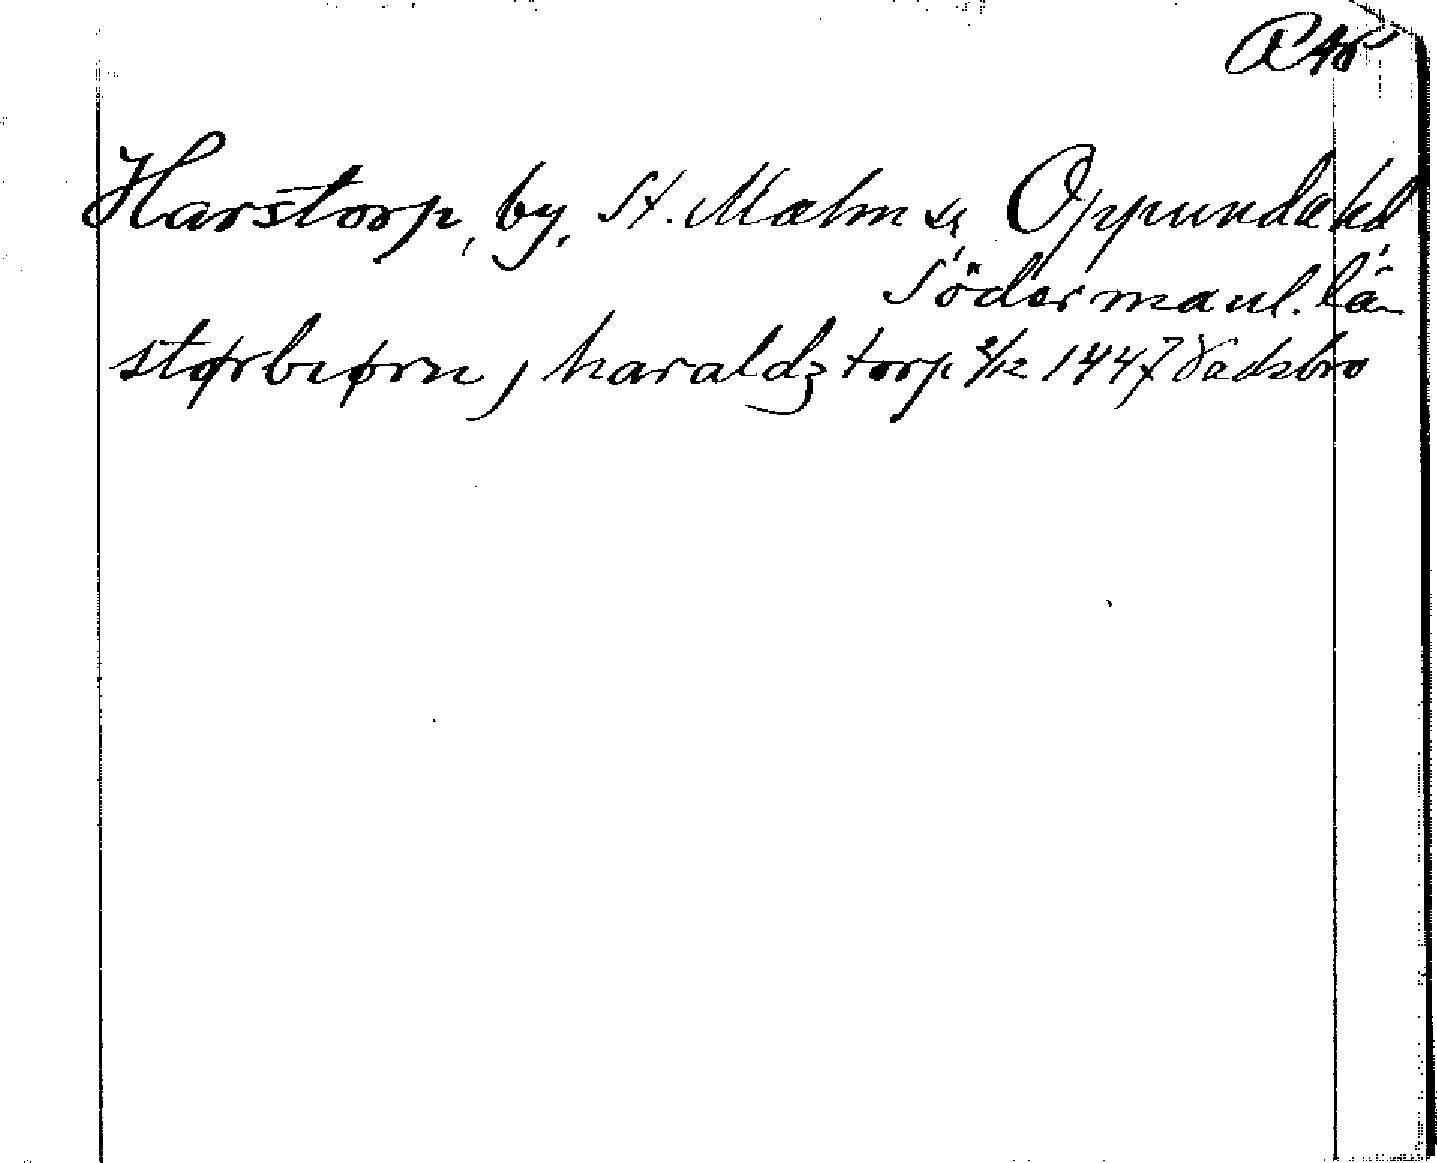 Harstorp, by, St. Malm sn, Oppunda hd,
Södermanl. län
størbiørn j haraldz torp 2/12 1447 Vadsbro